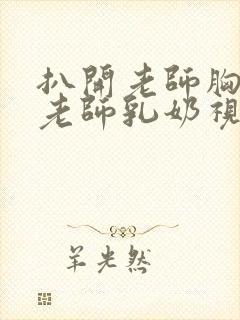 扒開老師胸
老師乳奶視
羊光然